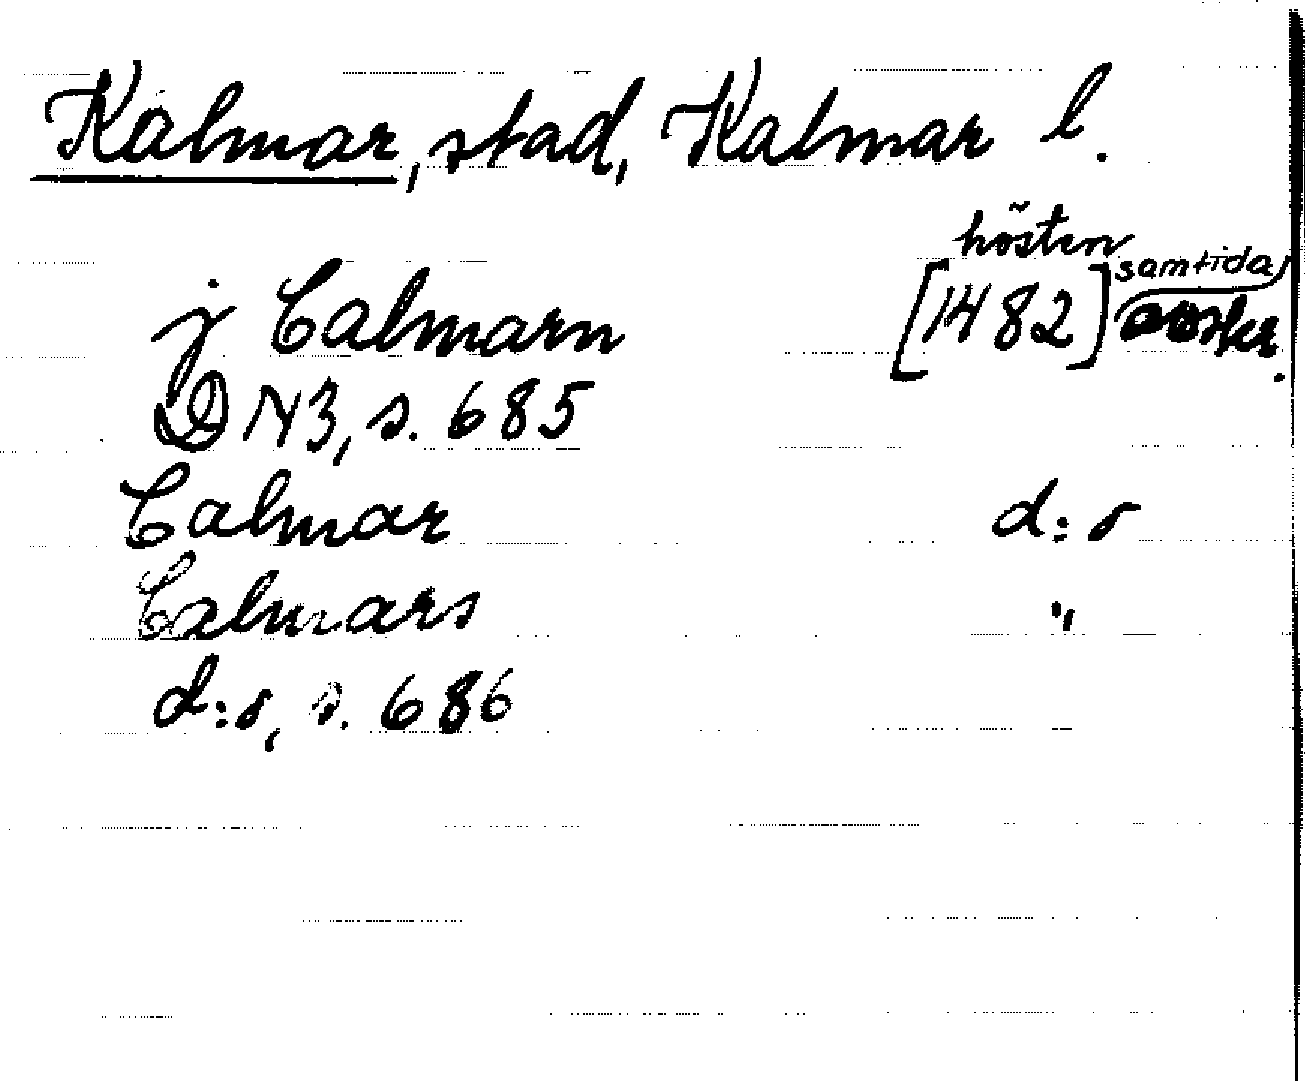 Kalmar, stad, Kalmar l.
hösten
j Calmarn [1482] samtida avskr.
DN3, s. 685
Calmar d:o
Calmars "
d:o, s. 686